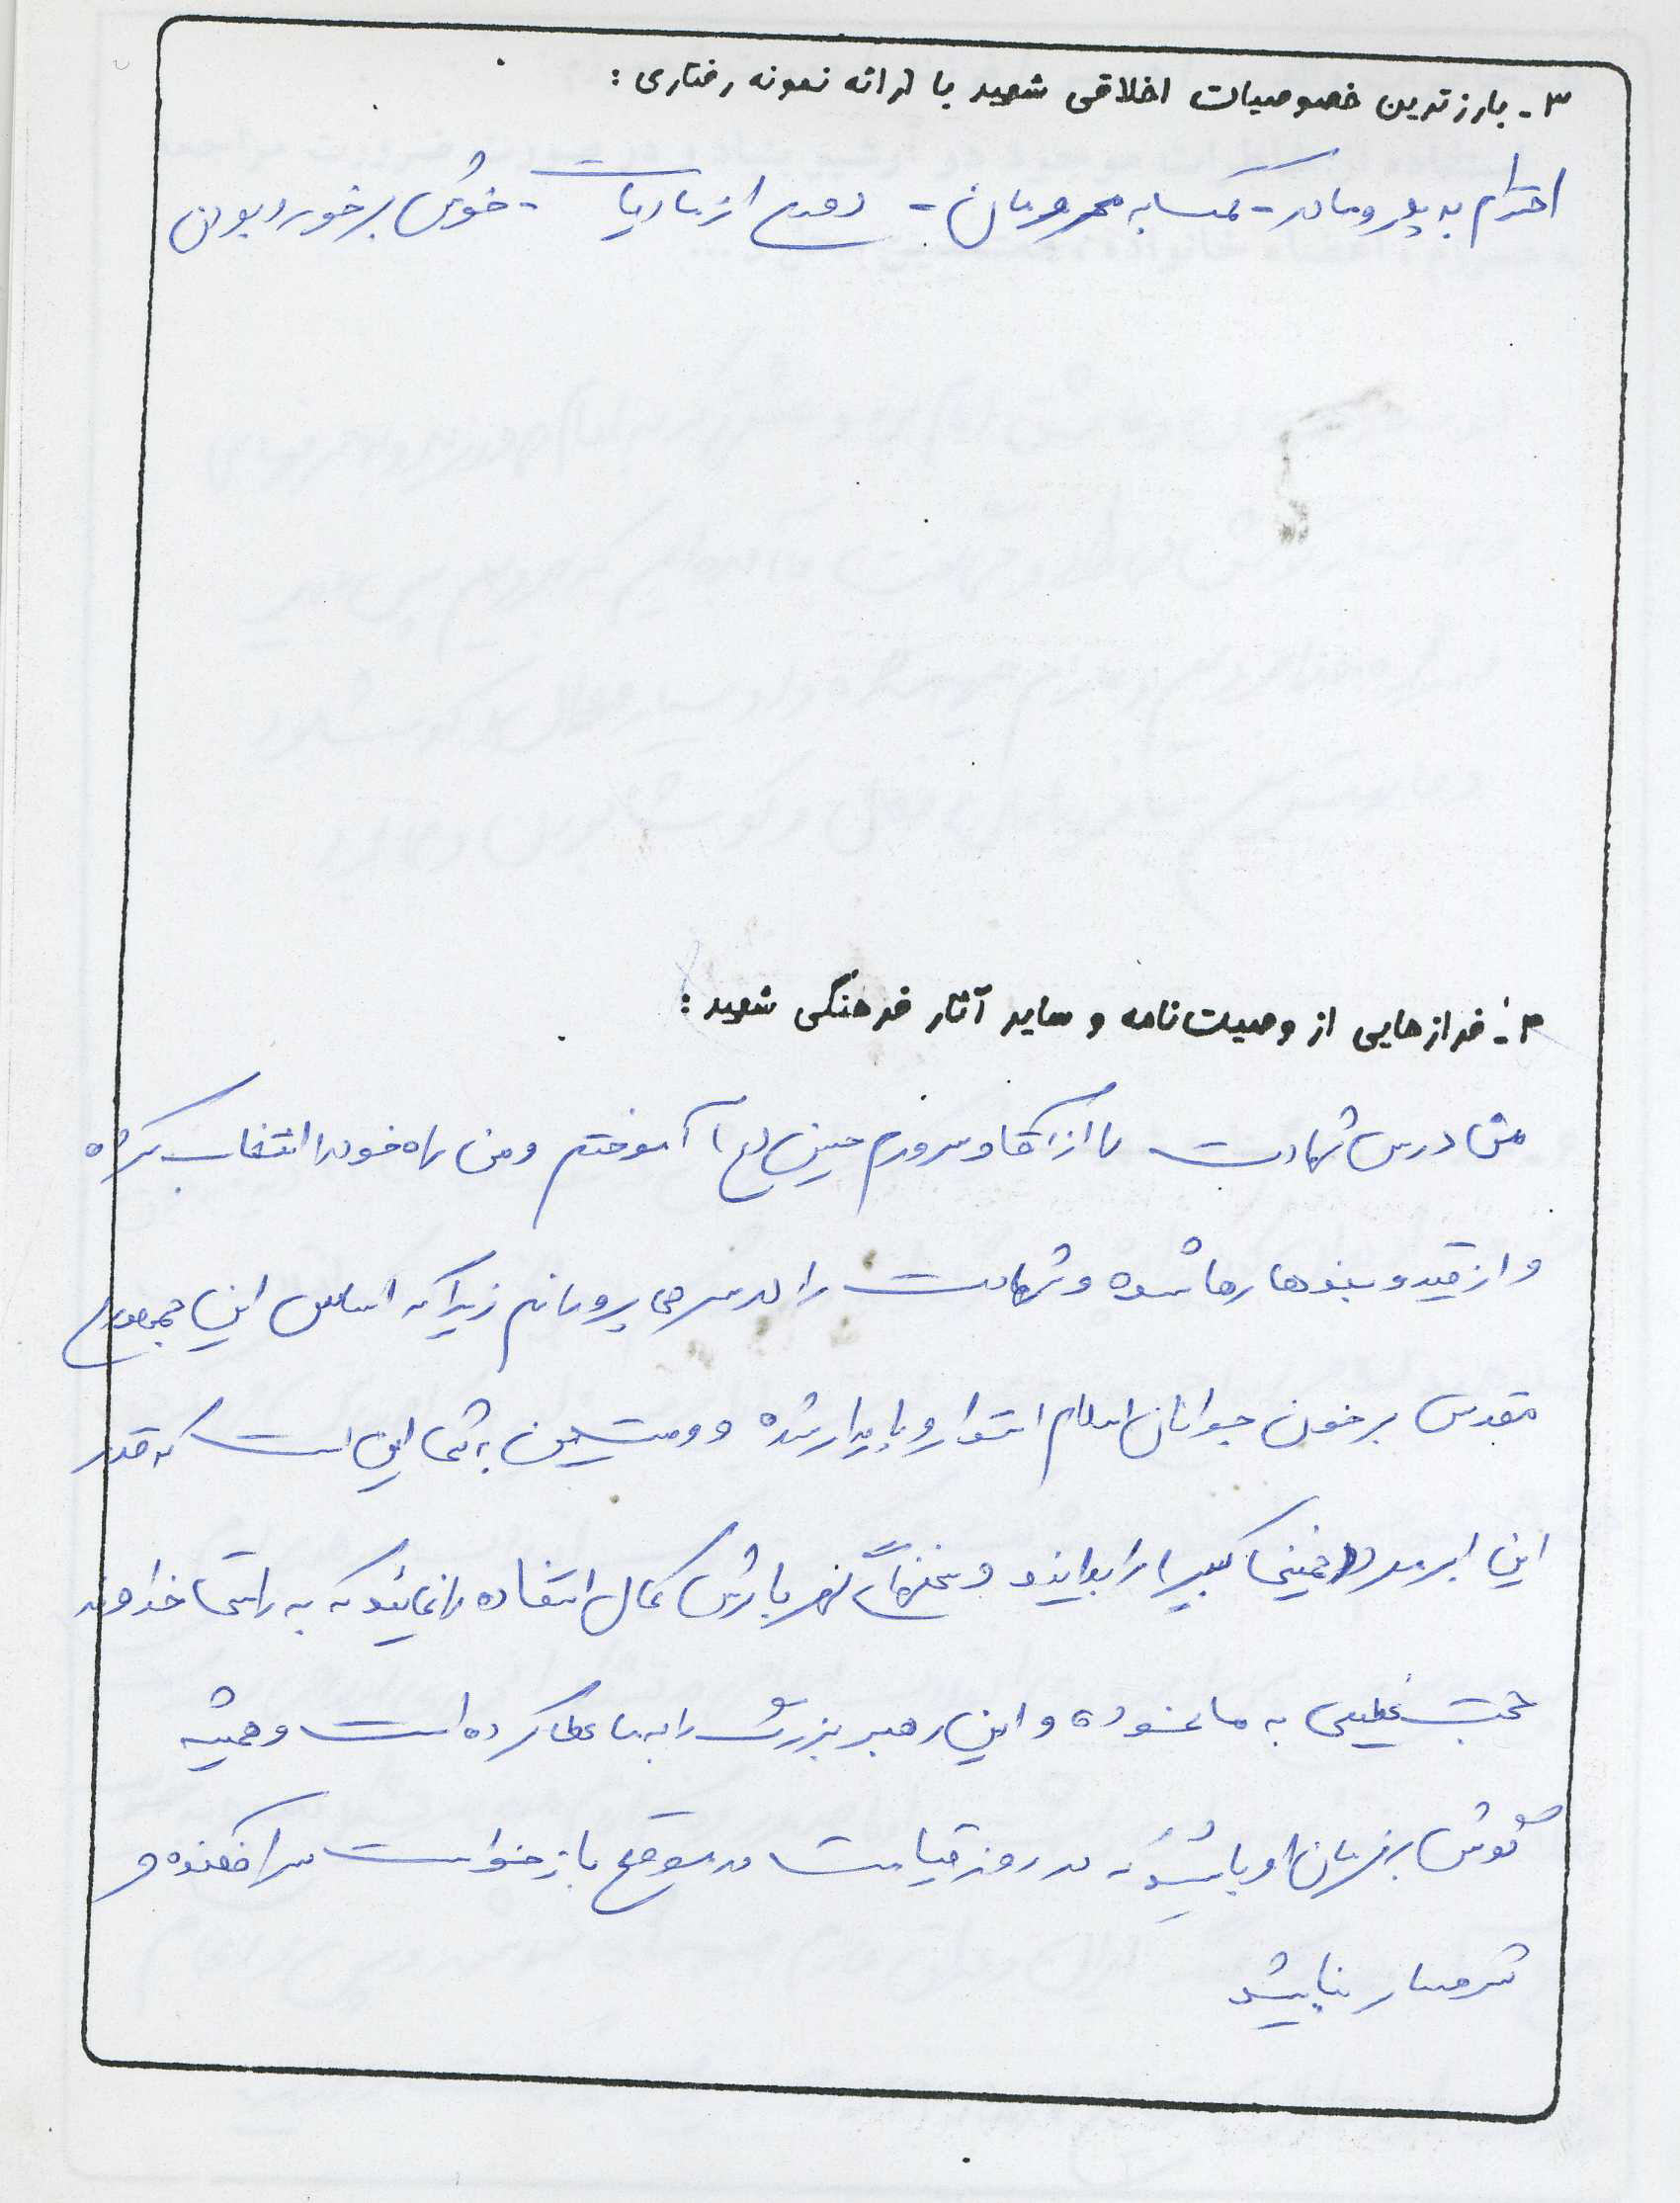 ۳ـ بارزترین خصوصیات اخلاقی شهید با ارائه نمونه رفتاری :
احترام به پدر و مادر - کمک به محرومان - دوری از مادیات - خوش برخورد بودن
۴ـ فرازهایی از وصیت‌نامه و سایر آثار فرهنگی شهید :
من درس شهادت را از آقا و سرورم حسین (ع) آموختم و من راه خود را انتخاب کرده
و از قید و بندها رها شده و شهادت را در سر می پرورانم زیرا که اساس این جمهوری
مقدس بر خون جوانان اسلام استوار و پایدار شده و وصیت من به شما این است که قدر
این ابرمرد خمینی کبیر را بدانید و سخنهای گهربارش کمال استفاده را نمائید که به راستی خداوند
محبت عظیمی به ما نموده و این رهبر بزرگ را به ما عطا کرده است و همیشه
گوش بفرمان او باشید که در روز قیامت در موقع بازخواست سرافکنده و
شرمسار نباشید